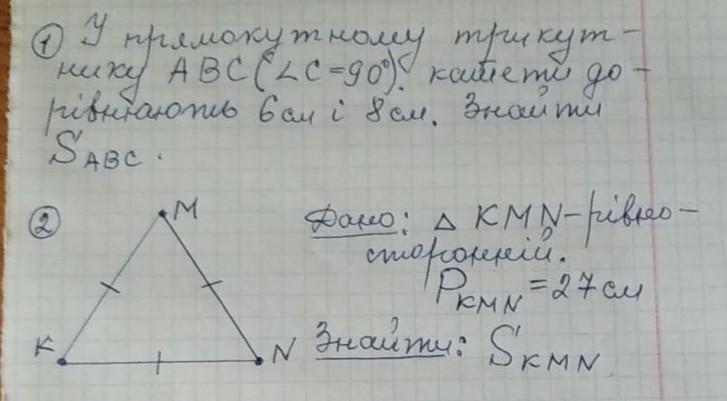 ① У прямокутному трикут-
нику ABC (∠C=90°). катети до-
рівнюють 6см і 8см. Знайти
S_ABC.
② M Дано: △ KMN-рівно-
сторонній.
P_KMN = 27см
K N Знайти: S_KMN